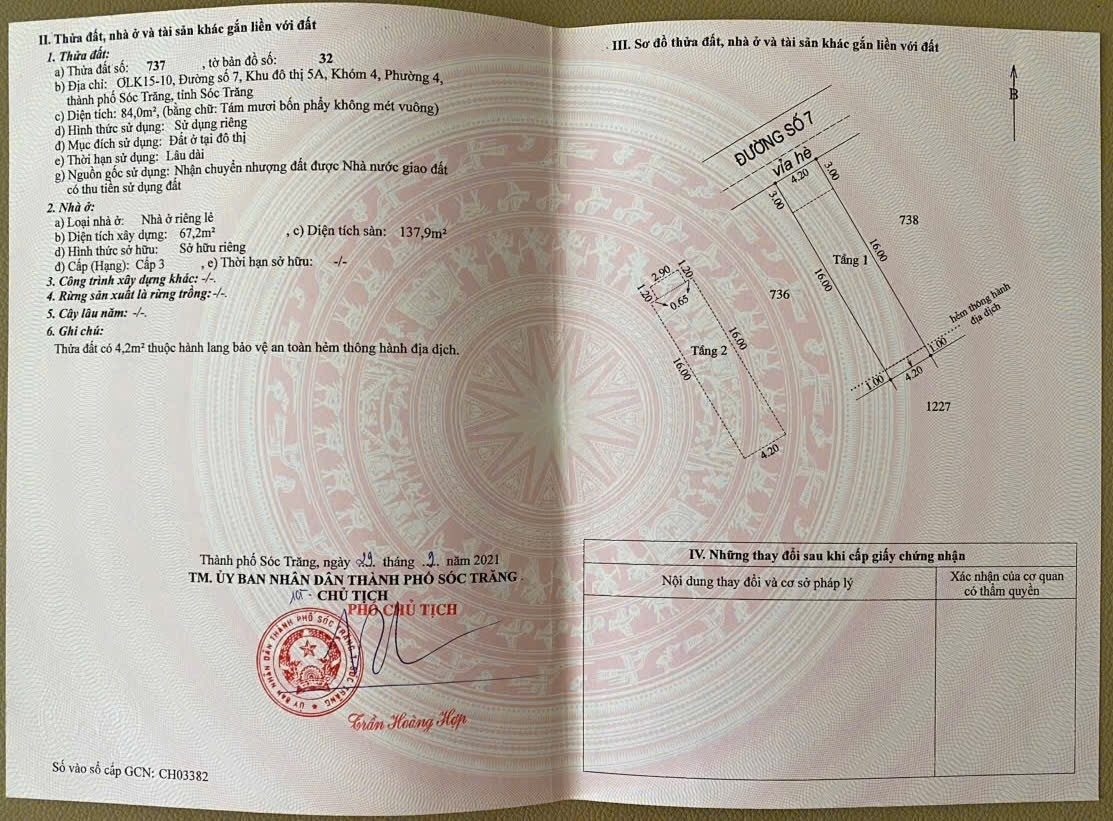 II. Thửa đất, nhà ở và tài sản khác gắn liền với đất
1. Thửa đất:
a) Thửa đất số: 737 , tờ bản đồ số: 32
b) Địa chỉ: OLK15-10, Đường số 7, Khu đô thị 5A, Khóm 4, Phường 4,
thành phố Sóc Trăng, tỉnh Sóc Trăng
c) Diện tích: 84,0m², (bằng chữ: Tám mươi bốn phẩy không mét vuông)
d) Hình thức sử dụng: Sử dụng riêng
đ) Mục đích sử dụng: Đất ở tại đô thị
e) Thời hạn sử dụng: Lâu dài
g) Nguồn gốc sử dụng: Nhận chuyển nhượng đất được Nhà nước giao đất
có thu tiền sử dụng đất
2. Nhà ở:
a) Loại nhà ở: Nhà ở riêng lẻ
b) Diện tích xây dựng: 67,2m² , c) Diện tích sàn: 137,9m²
d) Hình thức sở hữu: Sở hữu riêng
đ) Cấp (Hạng): Cấp 3 , e) Thời hạn sở hữu: -/-
3. Công trình xây dựng khác: -/-.
4. Rừng sản xuất là rừng trồng: -/-.
5. Cây lâu năm: -/-.
6. Ghi chú:
Thửa đất có 4,2m² thuộc hành lang bảo vệ an toàn hẻm thông hành địa dịch.
Thành phố Sóc Trăng, ngày 29 tháng 2 năm 2021
TM. ỦY BAN NHÂN DÂN THÀNH PHỐ SÓC TRĂNG
CHỦ TỊCH
PHÓ CHỦ TỊCH
ỦY BAN NHÂN DÂN THÀNH PHỐ SÓC TRĂNG T. SÓC TRĂNG
Trần Hoàng Hợp
Số vào sổ cấp GCN: CH03382
III. Sơ đồ thửa đất, nhà ở và tài sản khác gắn liền với đất
B
ĐƯỜNG SỐ 7
vỉa hè
4.20
3.00
3.00
738
Tầng 1
16.00
16.00
736
hẻm thông hành
địa dịch
1.00
1.00
4.20
1227
2.90
1.20
1.20
0.65
Tầng 2
16.00
16.00
4.20
IV. Những thay đổi sau khi cấp giấy chứng nhận
Nội dung thay đổi và cơ sở pháp lý
Xác nhận của cơ quan
có thẩm quyền